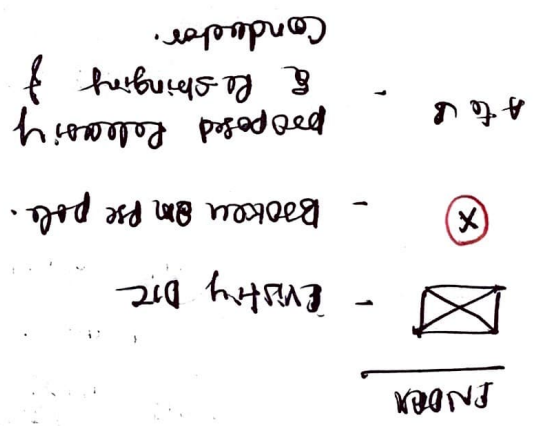 INDEX
- Existing DTC
X - Broken 8m PSC pole.
A to B - proposed Releasing
& Re-stringing of
Conductor.